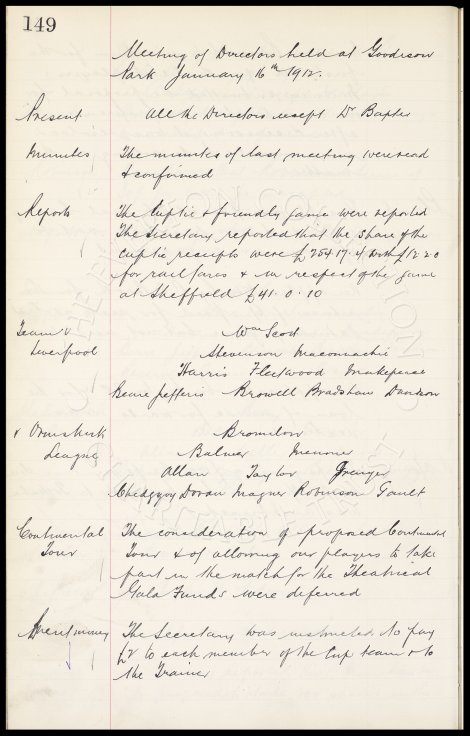 149
Meeting of Directors held at Goodison
Park January 16th 1912.
Present All the Directors except Dr Baxter
Minutes The minutes of last meeting were read
& confirmed
Reports The Cuptie & friendly game were reported
The Secretary reported that the share of the
cuptie receipts were £254.17.4 with £12.2.0
for rail fares & in respect of the game
at Sheffield £41.0.10
Team v Wm Scott
Liverpool Stevenson Maconnachie
Harris Fleetwood Makepeace
Beare Jefferis Browell Bradshaw Davidson
v Ormskirk Bromilow
League Balmer Meunier
Allan Taylor Grenyer
Chedgzoy Doran Magner Robinson Gault
Continental The consideration of proposed Continental
Tour Tour & of allowing our players to take
part in the match for the Theatrical
Gala Funds were deferred
money The Secretary was instructed to pay
£2 to each member of the Cup team & to
the Trainer